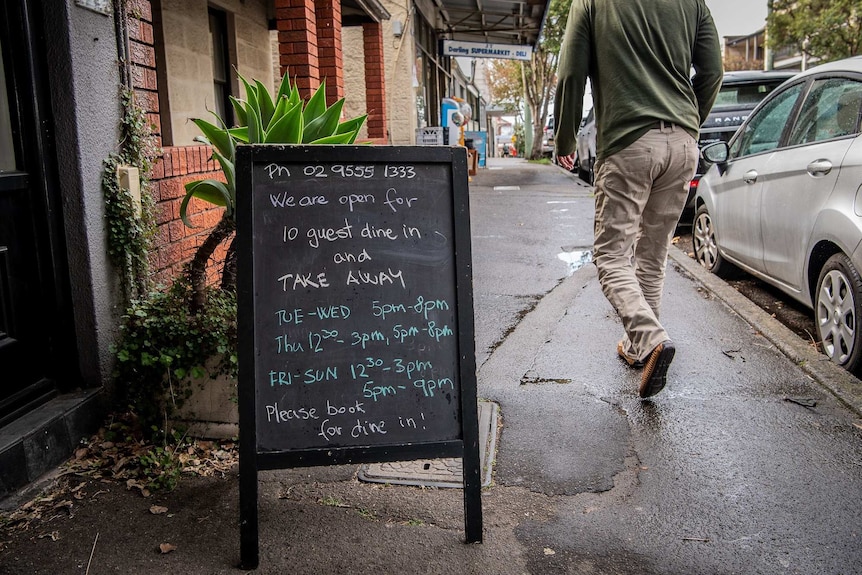 Darling SUPERMARKET - DELI
Ph 02 9555 1333
We are open for
10 guest dine in
and
TAKE AWAY
TUE-WED 5pm-8pm
Thu 12³⁰-3pm, 5pm-8pm
FRI-SUN 12³⁰-3pm
5pm-9pm
Please book
for dine in!